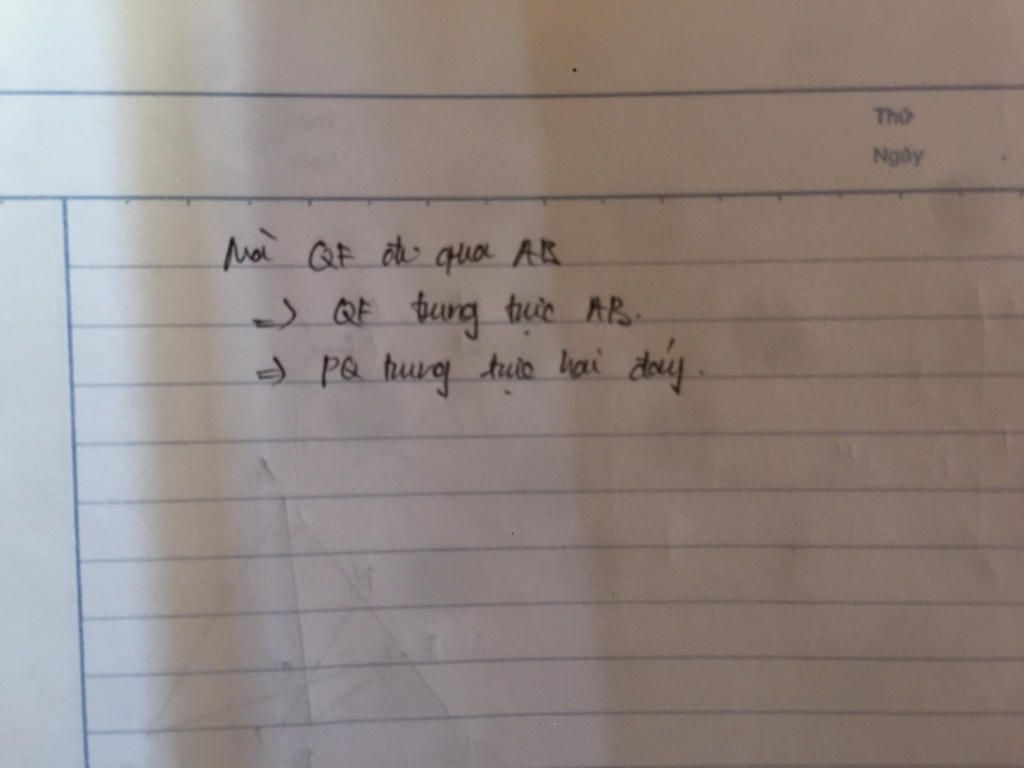 Thứ
Ngày
Mà QF đi qua AB
=> QF trung trực AB.
=> PQ trung trực hai đáy.